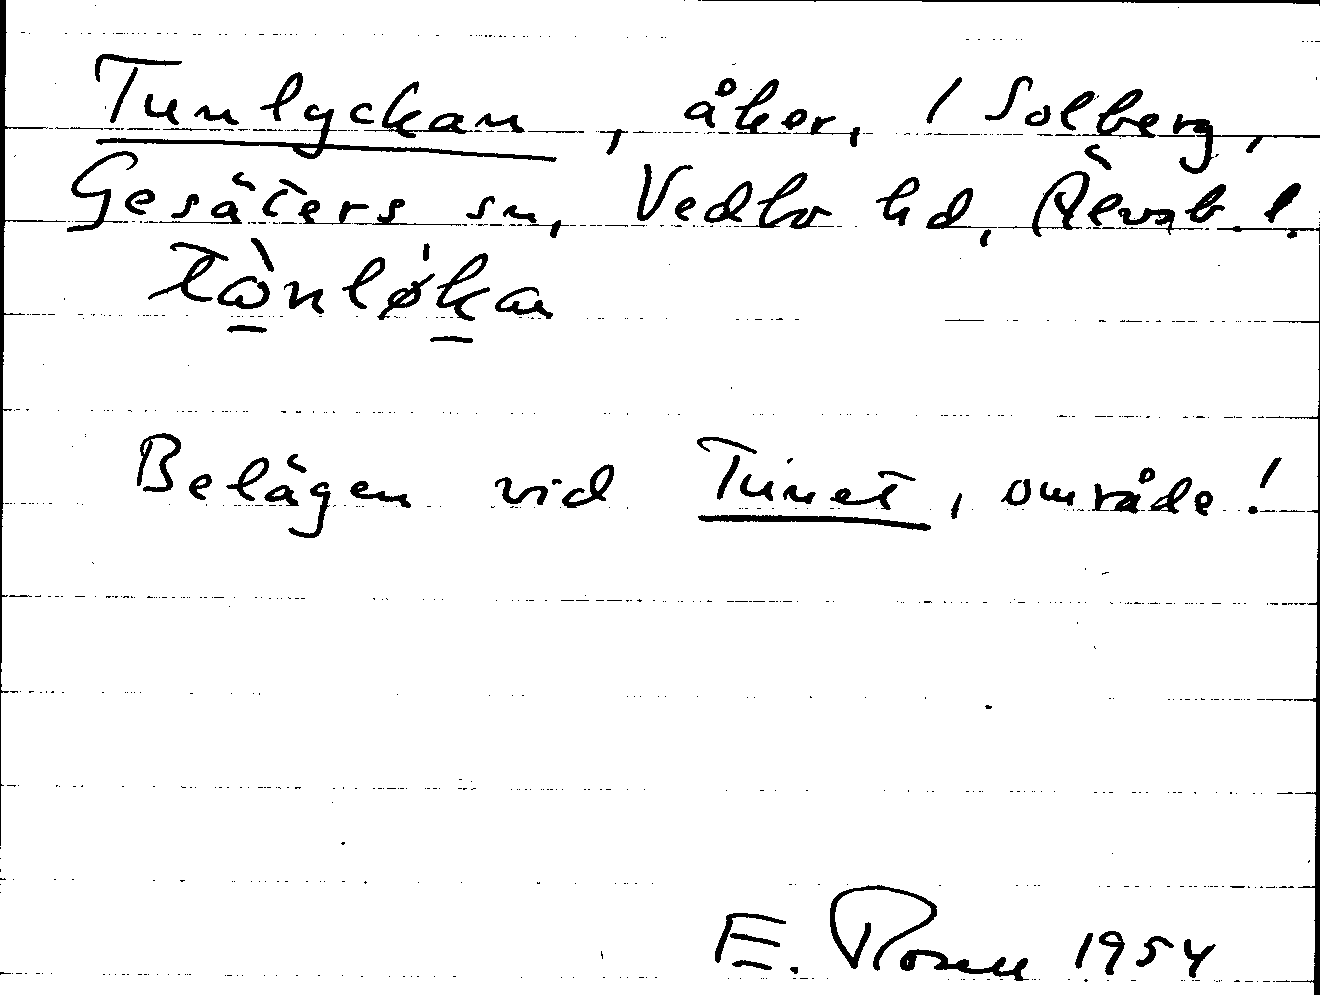 Tunlyckan, åker, 1 Solberg,
Gesäters sn, Vedbo hd, Älvsb. l.
tò̱nlø̀ḵan
Belägen vid Tunet, område!
E. Rosell 1954